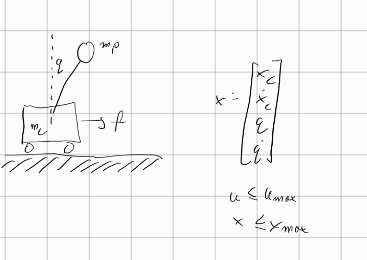 q
mp
mc
→ f
x = [x_c
ẋ_c
q
q̇]
u ≤ u_max
x ≤ x_max